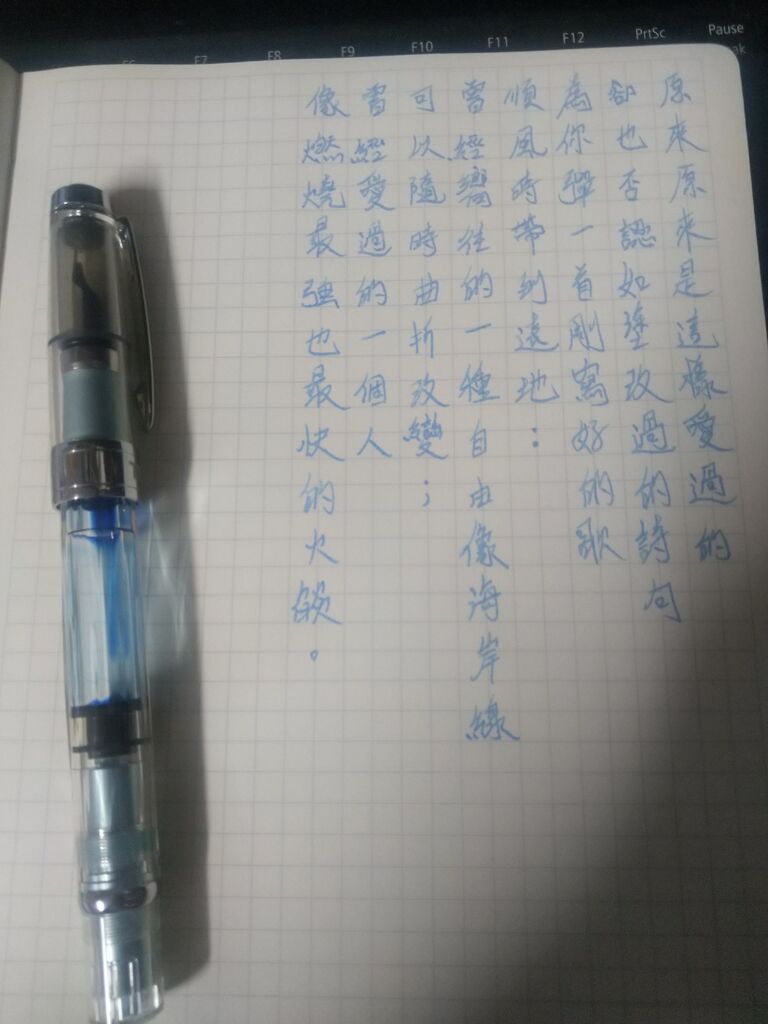 F6 F7 F8 F9 F10 F11 F12 PrtSc Pause
原來原來是這樣愛過的
卻也否認如塗改過的詩句
為你彈一首剛寫好的歌
順風時帶到遠地：
曾經嚮往的一種自由像海岸線
可以隨時曲折改變；
曾經愛過的一個人
像燃燒最強也最快的火燄。